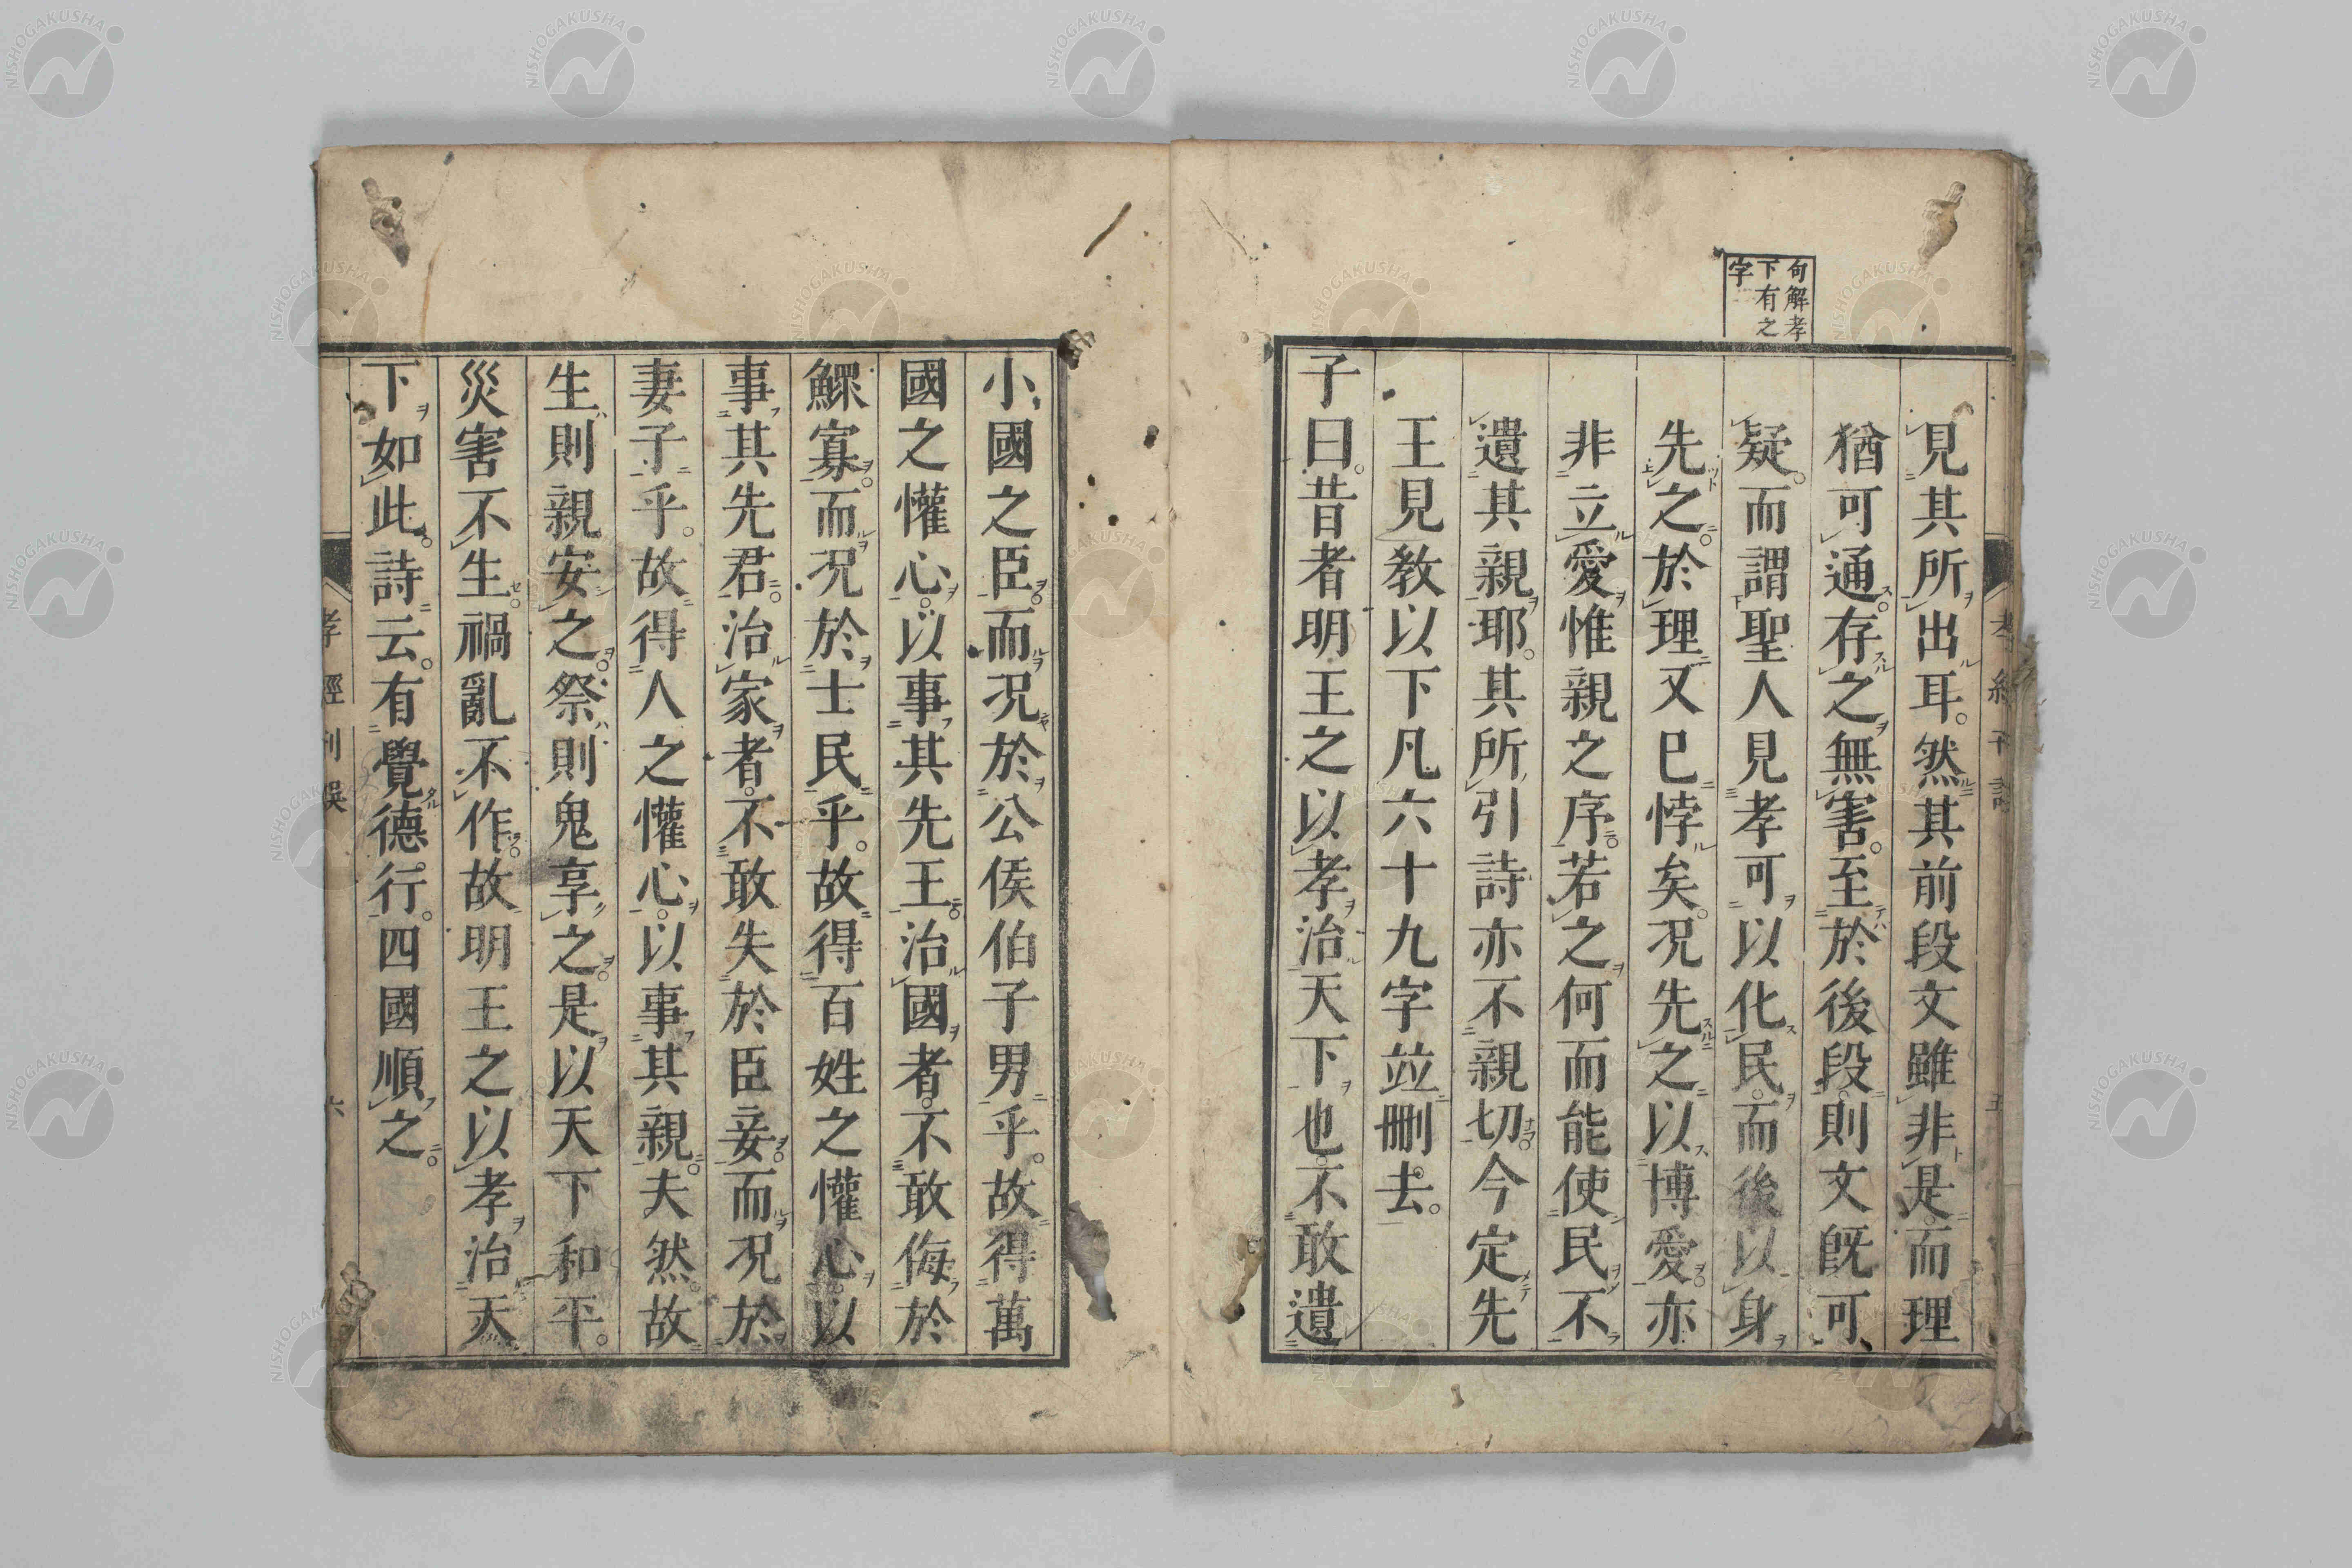 句解孝
下有之
字
見其所出耳。然其前段文雖非是。而理
猶可通。存之無害。至於後段則文既可
疑。而謂聖人見孝可以化民。而後以身
先之。於理又已悖矣。况先之以博愛。亦
非立愛惟親之序。若之何而能使民不
遺其親耶。其所引詩亦不親切。今定先
王見教以下凡六十九字並刪去。
子曰。昔者明王之以孝治天下也。不敢遺
小國之臣。而况於公侯伯子男乎。故得萬
國之懽心。以事其先王。治國者。不敢侮於
鰥寡。而况於士民乎。故得百姓之懽心。以
事其先君。治家者。不敢失於臣妾。而况於
妻子乎。故得人之懽心。以事其親。夫然。故
生則親安之。祭則鬼享之。是以天下和平。
災害不生。禍亂不作。故明王之以孝治天
下如此。詩云。有覺德行。四國順之。
孝經刊誤
六
NISHOGAKUSHA